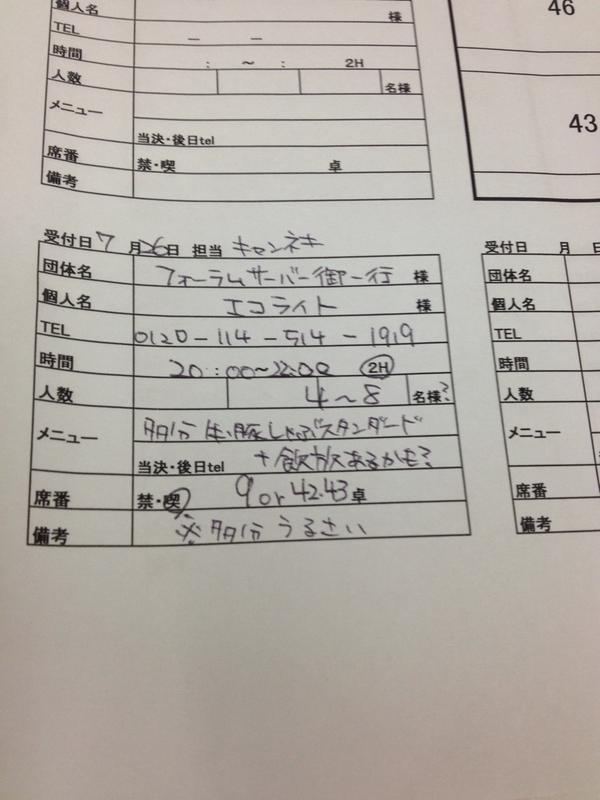 個人名 様
TEL － －
時間 : ～ : 2H
人数 名様
メニュー
当決・後日tel
席番 禁・喫 卓
備考
46
43
受付日7月26日 担当 キャンネキ
団体名 フォーラムサーバー御一行 様
個人名 エコライト 様
TEL 0120-114-514-1919
時間 20:00～22:00 2H
人数 4～8 名様?
メニュー 多分 生豚しゃぶスタンダード
当決・後日tel +飲放あるかも?
席番 禁・喫 9or42.43卓
備考 ※多分うるさい
受付日 月
団体名
個人名
TEL
時間
人数
メニュー
席番
備考